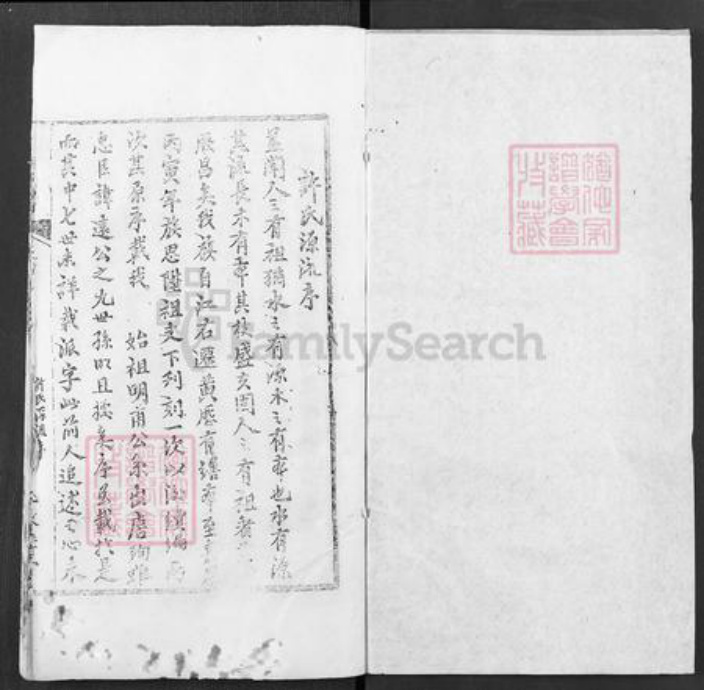 許氏源流序
蓋聞人之有祖猶水之有源木之有本也水有源
其流長木有本其枝盛亥固人之有祖者
殷昌矣我族自江右遷黃歷有譜本至
丙寅年族思隆祖支下列刻一次以
次其原序載我 始祖明甫公系出唐
忠臣諱遠公之九世孫明且據矣序虽載於是
而其中七世未詳載派字此前人追述之心未
許氏源流序
FamilySearch
譜學會
特藏